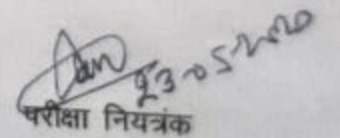 23-05-2020
परीक्षा नियत्रंक